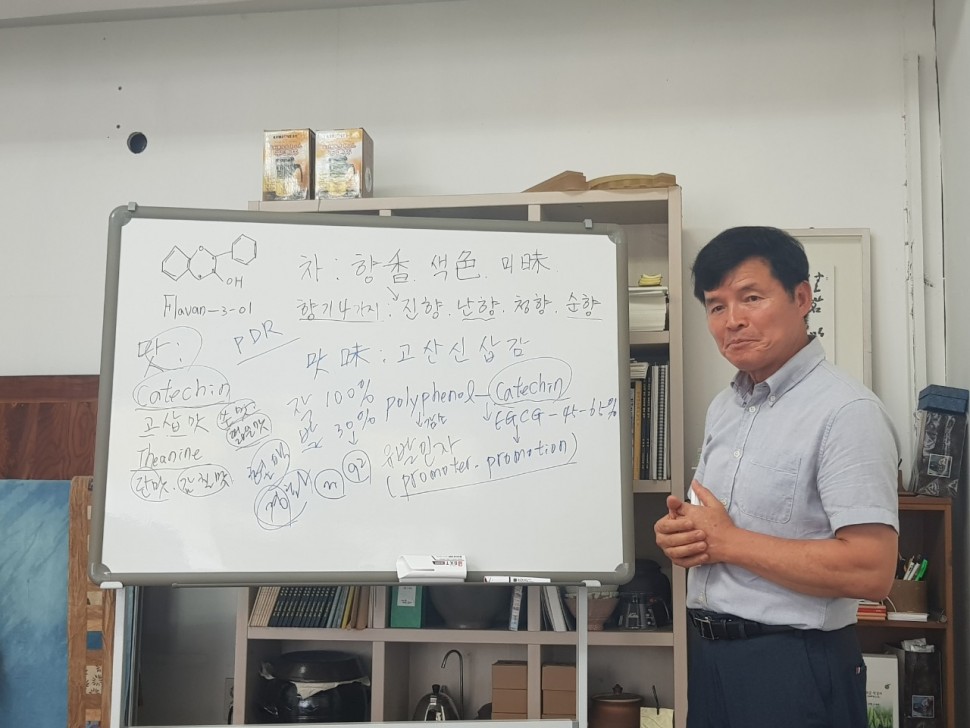 OH
Flavan-3-ol
차 : 향香. 색色. 미味.
향기 4가지 : 진향. 난향. 청향. 순향
PDR
맛 :
맛 味 : 고산신삽감
Catechin
고삽맛
쓴맛
떫은맛
Theanine
단맛. 감칠맛
잘 100%
발 30%
polyphenol - Catechin
EGCG - 45 - 65%
유발인자
(promoter. promotion)